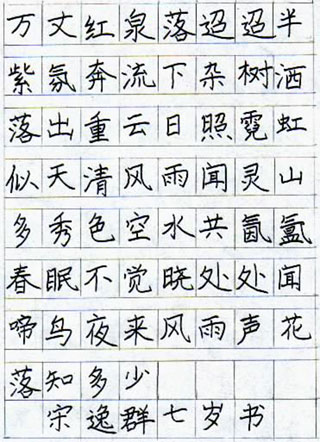 万丈红泉落迢迢半
紫氛奔流下杂树洒
落出重云日照霓虹
似天清风雨闻灵山
多秀色空水共氤氲
春眠不觉晓处处闻
啼鸟夜来风雨声花
落知多少
宋逸群七岁书